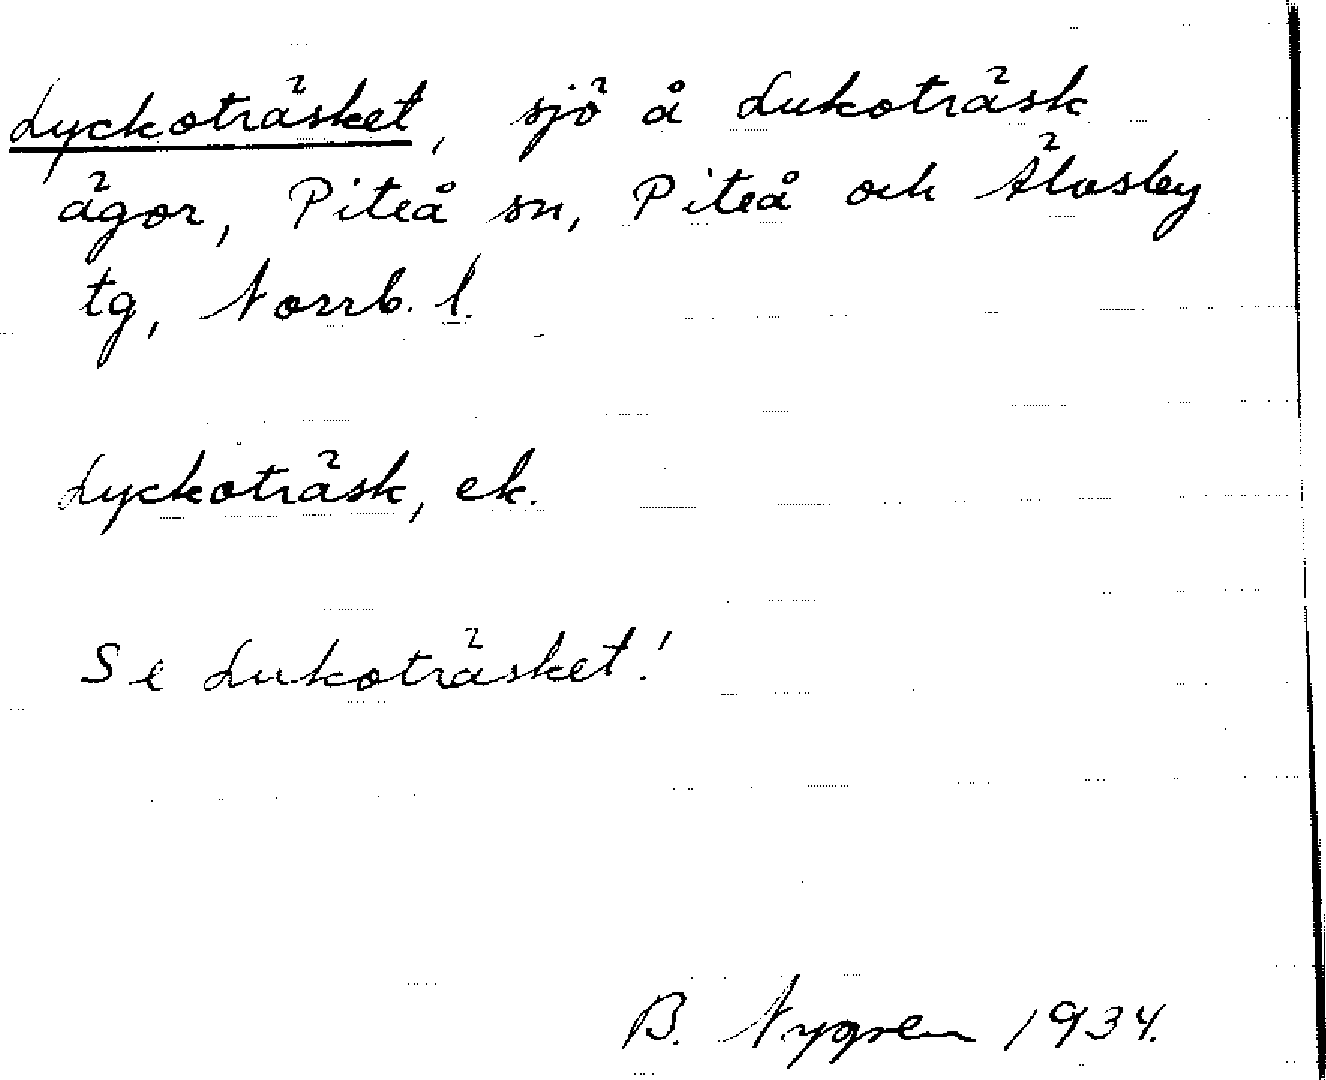 Lyckoträsket, sjö å Lukoträsk
ägor, Piteå sn, Piteå och Älvsby
tg, Norrb. l.
Lyckoträsk, ek.
Se Lukoträsket!
B. Nygren 1934.